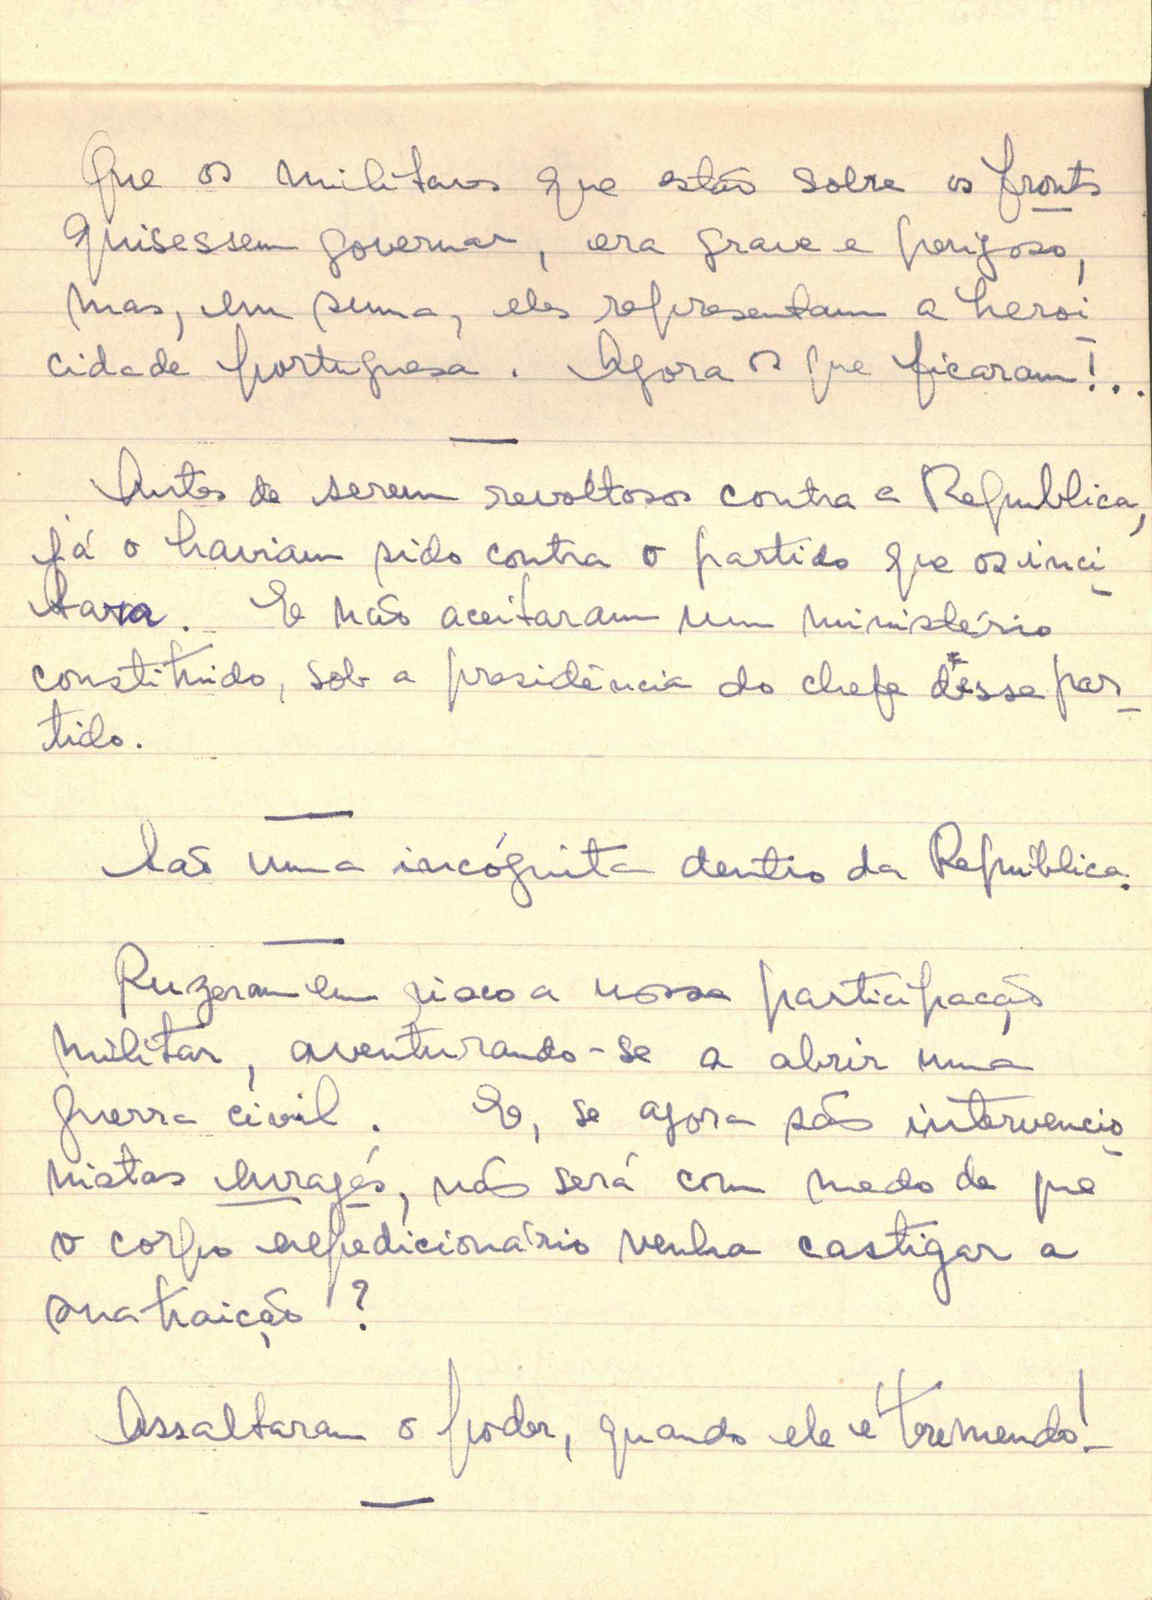 Que os militares que estão sobre os fronts
quisessem governar, era grave e perigoso,
mas, em suma, eles representam a heroi
cidade portuguesa. Agora os que ficaram!..
Antes de serem revoltosos contra a República,
já o haviam sido contra o partido que os inci-
tara. E não aceitaram um ministério
constituido, sob a presidência do chefe dêsse par-
tido.
São uma incógnita dentro da República.
Puzeram em risco a nossa participação
militar, aventurando-se a abrir uma
guerra civil. E, se agora são intervencio-
nistas enragés, não será com medo de que
o corpo expedicionário venha castigar a
sua traição?
Assaltaram o poder, quando ele é tremendo!